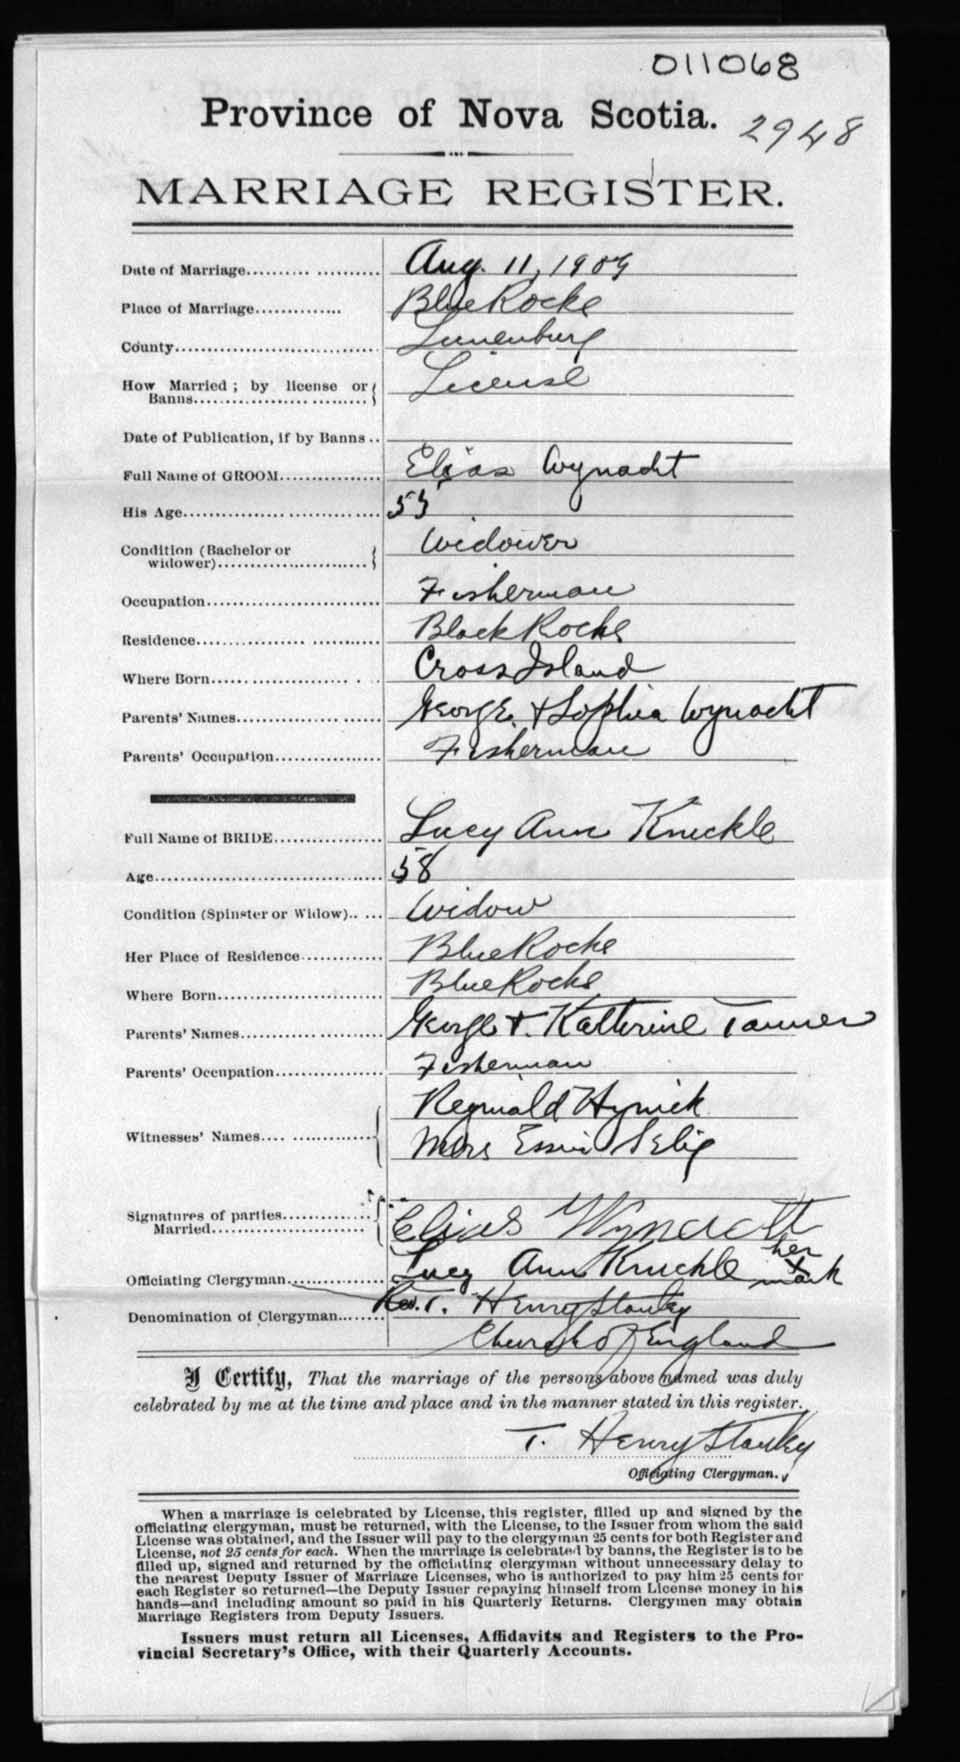 011068
Province of Nova Scotia. 2948
MARRIAGE REGISTER.
Date of Marriage.......... Aug. 11, 1909
Place of Marriage.............. Blue Rocks
County.............................. Lunenburg
How Married ; by license or Banns.............................. License
Date of Publication, if by Banns ..
Full Name of GROOM................. Elias Wynacht
His Age.............................. 55
Condition (Bachelor or widower)........................ Widower
Occupation.............................. Fisherman
Residence.............................. Black Rocks
Where Born.............................. Cross Island
Parents' Names.............................. George & Sophia Wynacht
Parents' Occupation.................. Fisherman
Full Name of BRIDE................. Lucy Ann Knickle
Age.............................. 58
Condition (Spinster or Widow)..... Widow
Her Place of Residence............. Blue Rocks
Where Born.............................. Blue Rocks
Parents' Names.............................. George & Katherine Tanner
Parents' Occupation.................. Fisherman
Reginald Hynick
Witnesses' Names.................. Mrs Selig
Signatures of parties Married.............................. Elias Wynacht
her
Officiating Clergyman.............. Lucy Ann Knickle x mark
Rev. T. Henry Stanley
Denomination of Clergyman....... Church of England
I Certify, That the marriage of the persons above named was duly
celebrated by me at the time and place and in the manner stated in this register.
T. Henry Stanley
Officiating Clergyman.
When a marriage is celebrated by License, this register, filled up and signed by the
officiating clergyman, must be returned, with the License, to the Issuer from whom the said
License was obtained, and the Issuer will pay to the clergyman 25 cents for both Register and
License, not 25 cents for each. When the marriage is celebrated by banns, the Register is to be
filled up, signed and returned by the officiating clergyman without unnecessary delay to
the nearest Deputy Issuer of Marriage Licenses, who is authorized to pay him 25 cents for
each Register so returned—the Deputy Issuer repaying himself from License money in his
hands—and including amount so paid in his Quarterly Returns. Clergymen may obtain
Marriage Registers from Deputy Issuers.
Issuers must return all Licenses, Affidavits and Registers to the Pro-
vincial Secretary's Office, with their Quarterly Accounts.